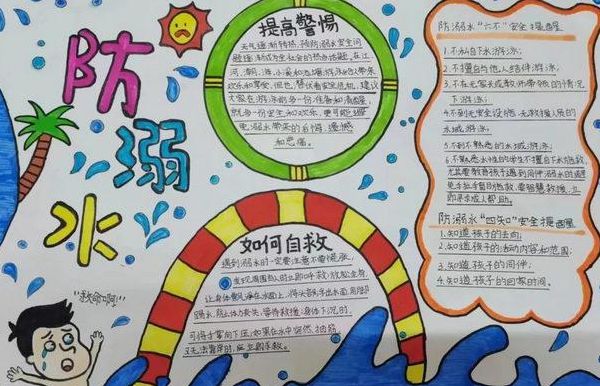 防溺水
提高警惕
天气逐渐转热,预防溺水安全问
题逐渐成为全社会的热点话题,在江
河、湖、海、小溪和池塘游泳也给大家带来
欢乐和享受,但也
大家在游泳前多一份准备和清醒,
就多一份安全和欢乐,更可能避
免溺水带来的
和悲痛。
如何自救
遇到溺水时一定要注意不要慌张,
发现周围有人时立即呼救,放松全身,
让身体飘浮在水面上,将头部浮出水面,用脚
踢水,防止体力丧失,等待救援,身体下沉时,
可将手掌向下压,如果在水中突然抽筋,
又无法靠岸时,立即求救。
"救命啊"
防溺水"六不"安全提醒
1.不私自下水游泳;
2.不擅自与他人结伴游泳;
3.不在无家长或教师带领的情况
下游泳;
4.不到无安全设施、无救援人员的
水域游泳;
5.不到不熟悉的水域游泳;
6.不熟悉水性的学生不擅自下水施救,
尤其要教育孩子遇到同伴溺水时避
免手拉手盲目施救,要智慧救援,立
即寻求成人帮助。
防溺水"四知"安全提醒
1.知道孩子的去向;
2.知道孩子的活动内容和范围;
3.知道孩子的同伴;
4.知道孩子的回家时间。